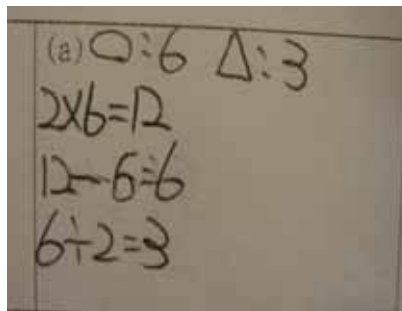 (a) ○:6 △:3
2×6=12
12-6=6
6÷2=3